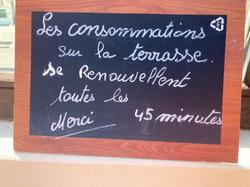 Les consommations
sur la terrasse.
se Renouvellent
toutes les
45 minutes
Merci